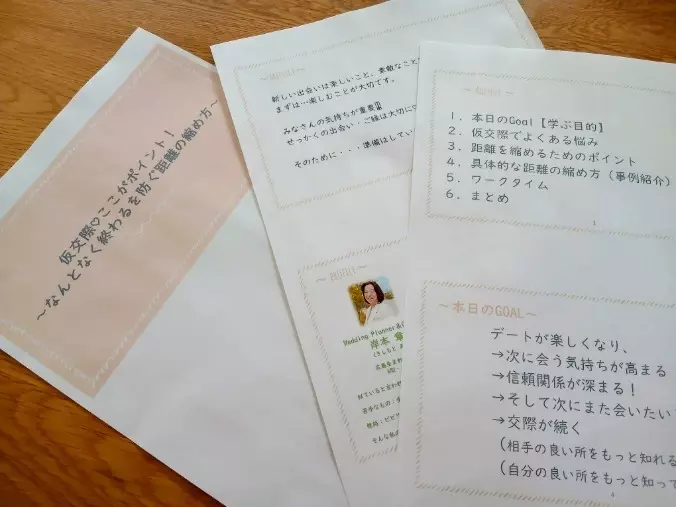 仮交際♡ここがポイント！
～なんとなく終わるを防ぐ距離の縮め方～
新しい出会いは�しいこと、素敵なこと
まずは…楽しむことが大切です。
みなさんの気持ちが重要‼
せっかくの出会い・ご縁は大切に
そのために・・・準備はしてい
Wedding Planner&
岸本
１．本日のGoal【学ぶ目的】
２．仮交際でよくある悩み
３．距離を縮めるためのポイント
４．具体的な距離の縮め方（事例紹介）
５．ワークタイム
６．まとめ
～本日のGOAL～
デートが楽しくなり、
→次に会う気持ちが高まる
→信頼関係が深まる！
→そして次にまた会いたい
→交際が続く
（相手の良い所をもっと知れる
（自分の良い所をもっと知って